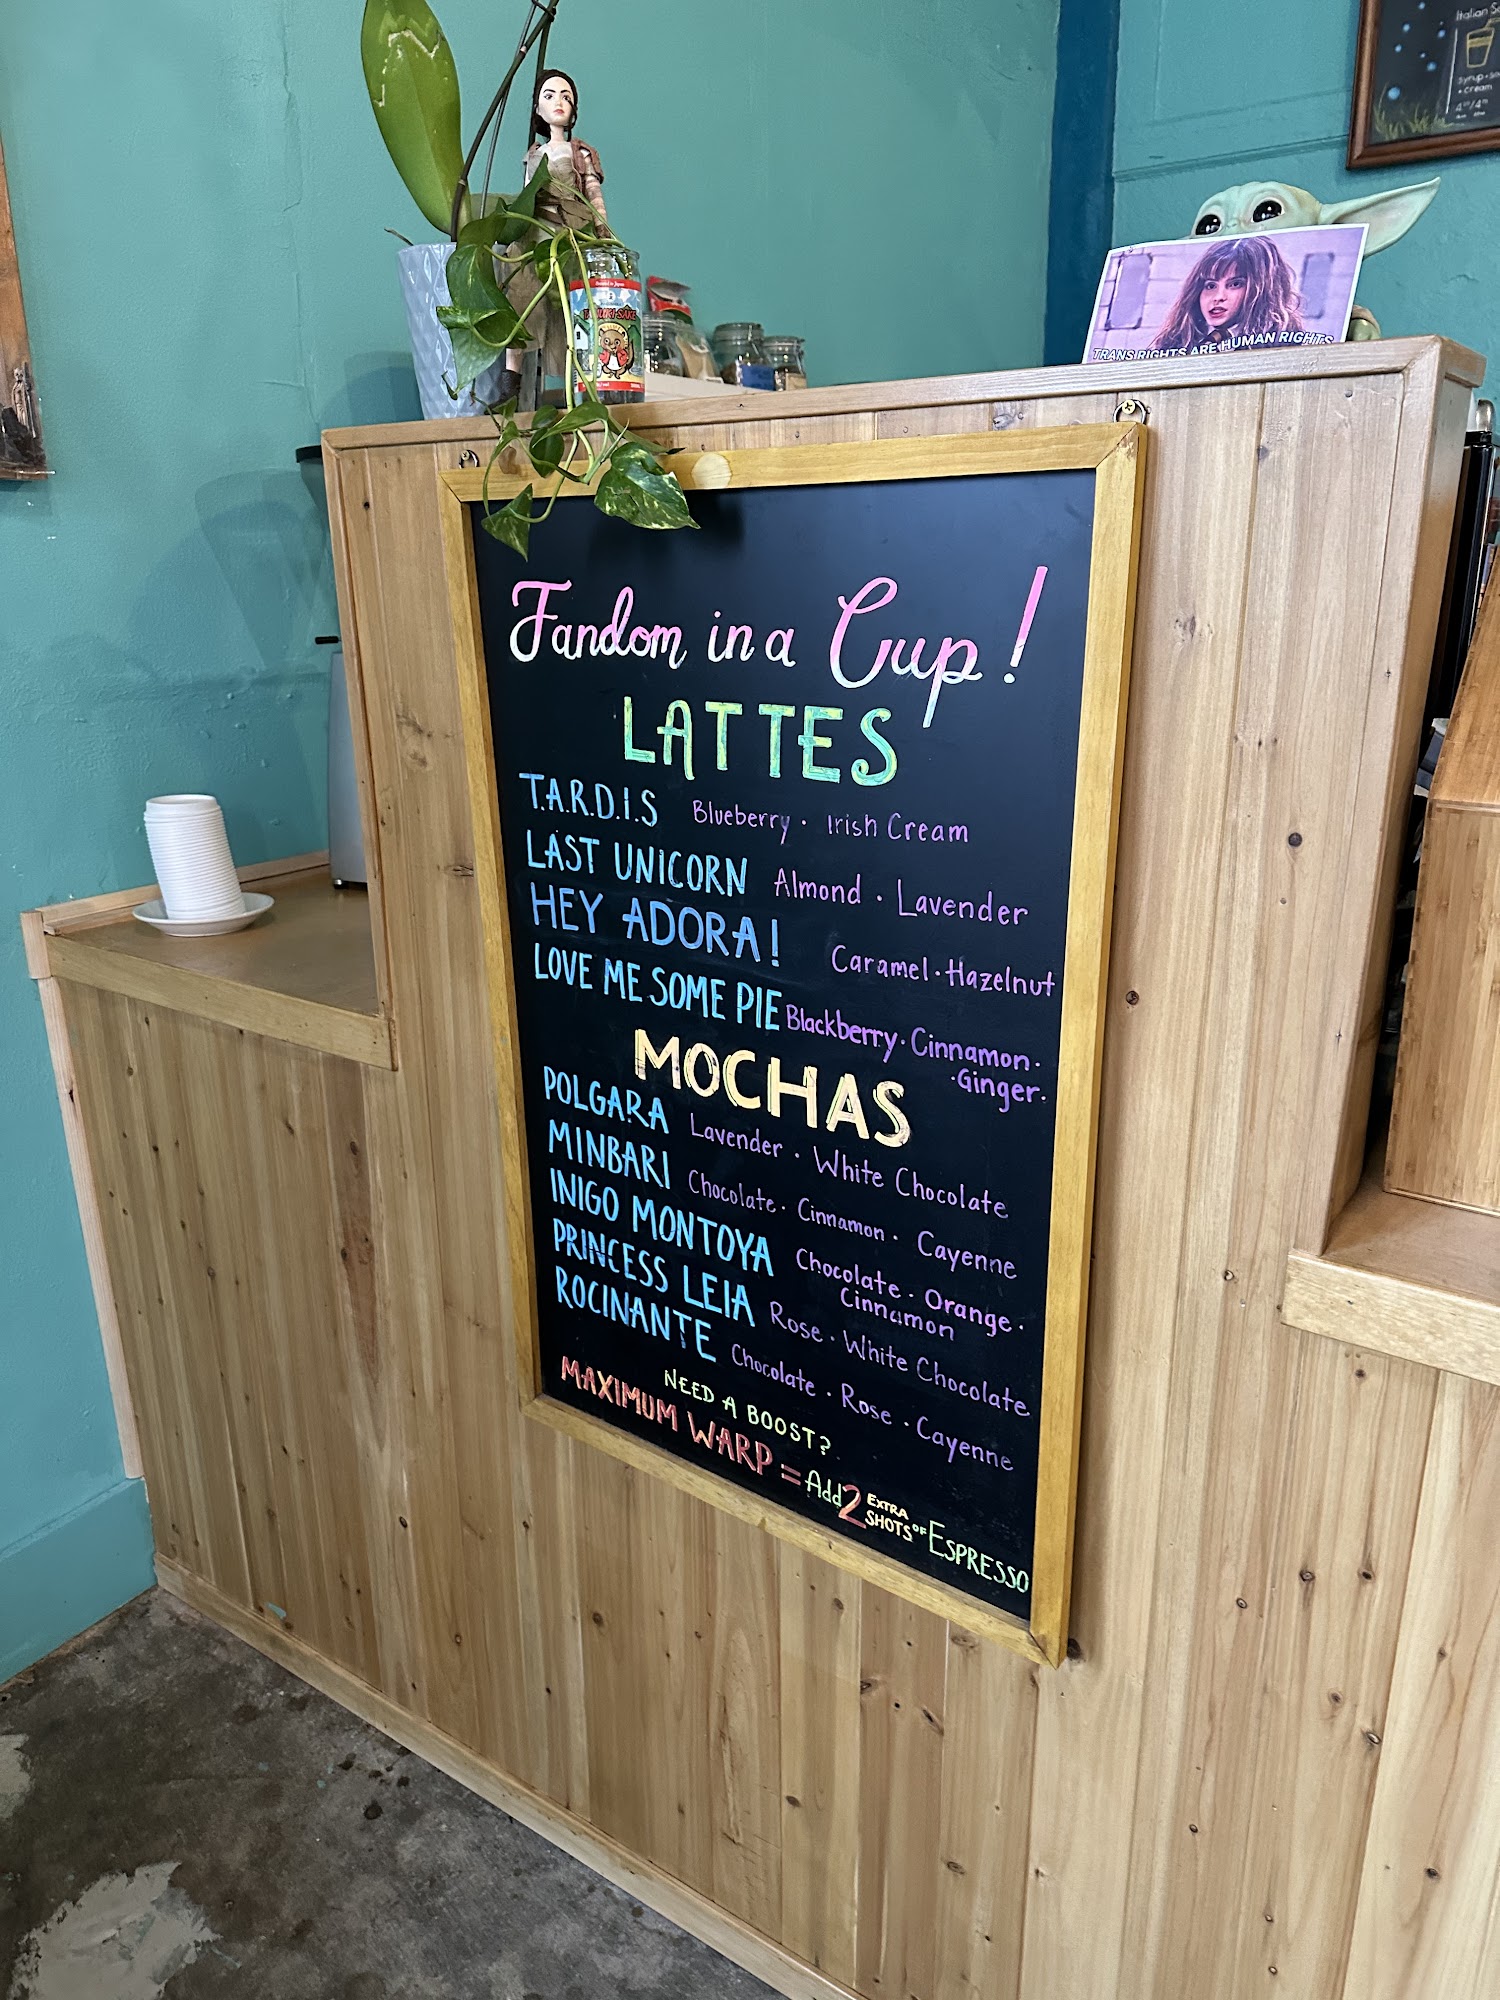 Italian
syrup
cream
TANUKI SAKE
TRANS RIGHTS ARE HUMAN RIGHTS
Fandom in a Cup!
LATTES
T.A.R.D.I.S Blueberry · Irish Cream
LAST UNICORN Almond · Lavender
HEY ADORA! Caramel · Hazelnut
LOVE ME SOME PIE Blackberry · Cinnamon ·
· Ginger ·
MOCHAS
POLGARA Lavender · White Chocolate
MINBARI Chocolate · Cinnamon · Cayenne
INIGO MONTOYA Chocolate · Orange ·
Cinnamon
PRINCESS LEIA Rose · White Chocolate
ROCINANTE Chocolate · Rose · Cayenne
NEED A BOOST?
MAXIMUM WARP = Add 2 EXTRA SHOTS OF ESPRESSO